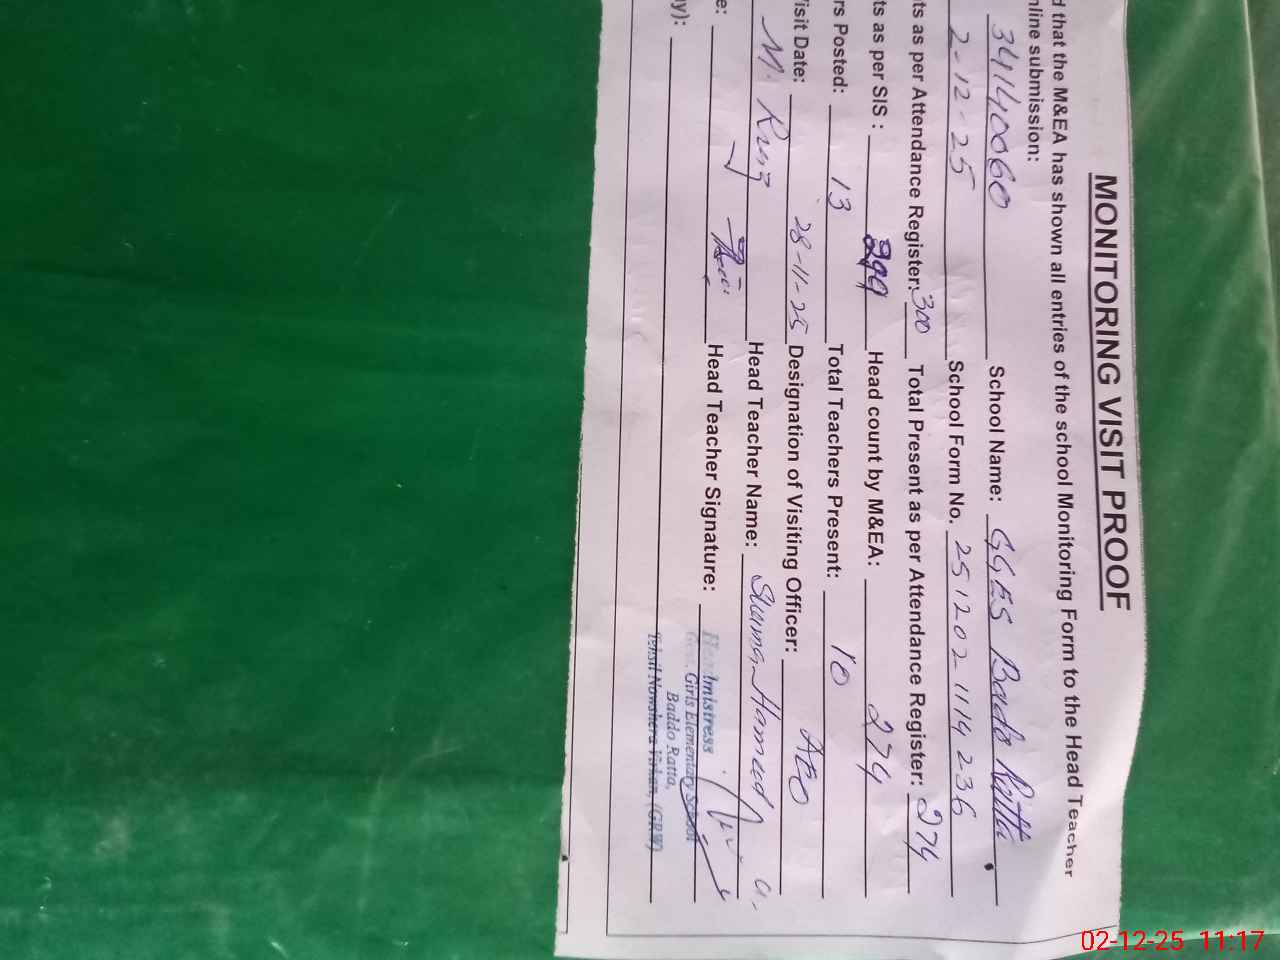 MONITORING VISIT PROOF
d that the M&EA has shown all entries of the school Monitoring Form to the Head Teacher
nline submission:
34140060 School Name: GGES Bado Ratta
2-12-25 School Form No. 251202 1114 236
ts as per Attendance Register: 300 Total Present as per Attendance Register: 274
ts as per SIS : 299 Head count by M&EA: 274
rs Posted: 13 Total Teachers Present: 10
isit Date: 28-11-25 Designation of Visiting Officer: AEO
M. Head Teacher Name: Hameed
e: Head Teacher Signature:
y):
Headmistress
Govt. Girls Elementary School
Baddo Ratta,
Tehsil Nowshera Virkan, (GRW)
02-12-25 11:17